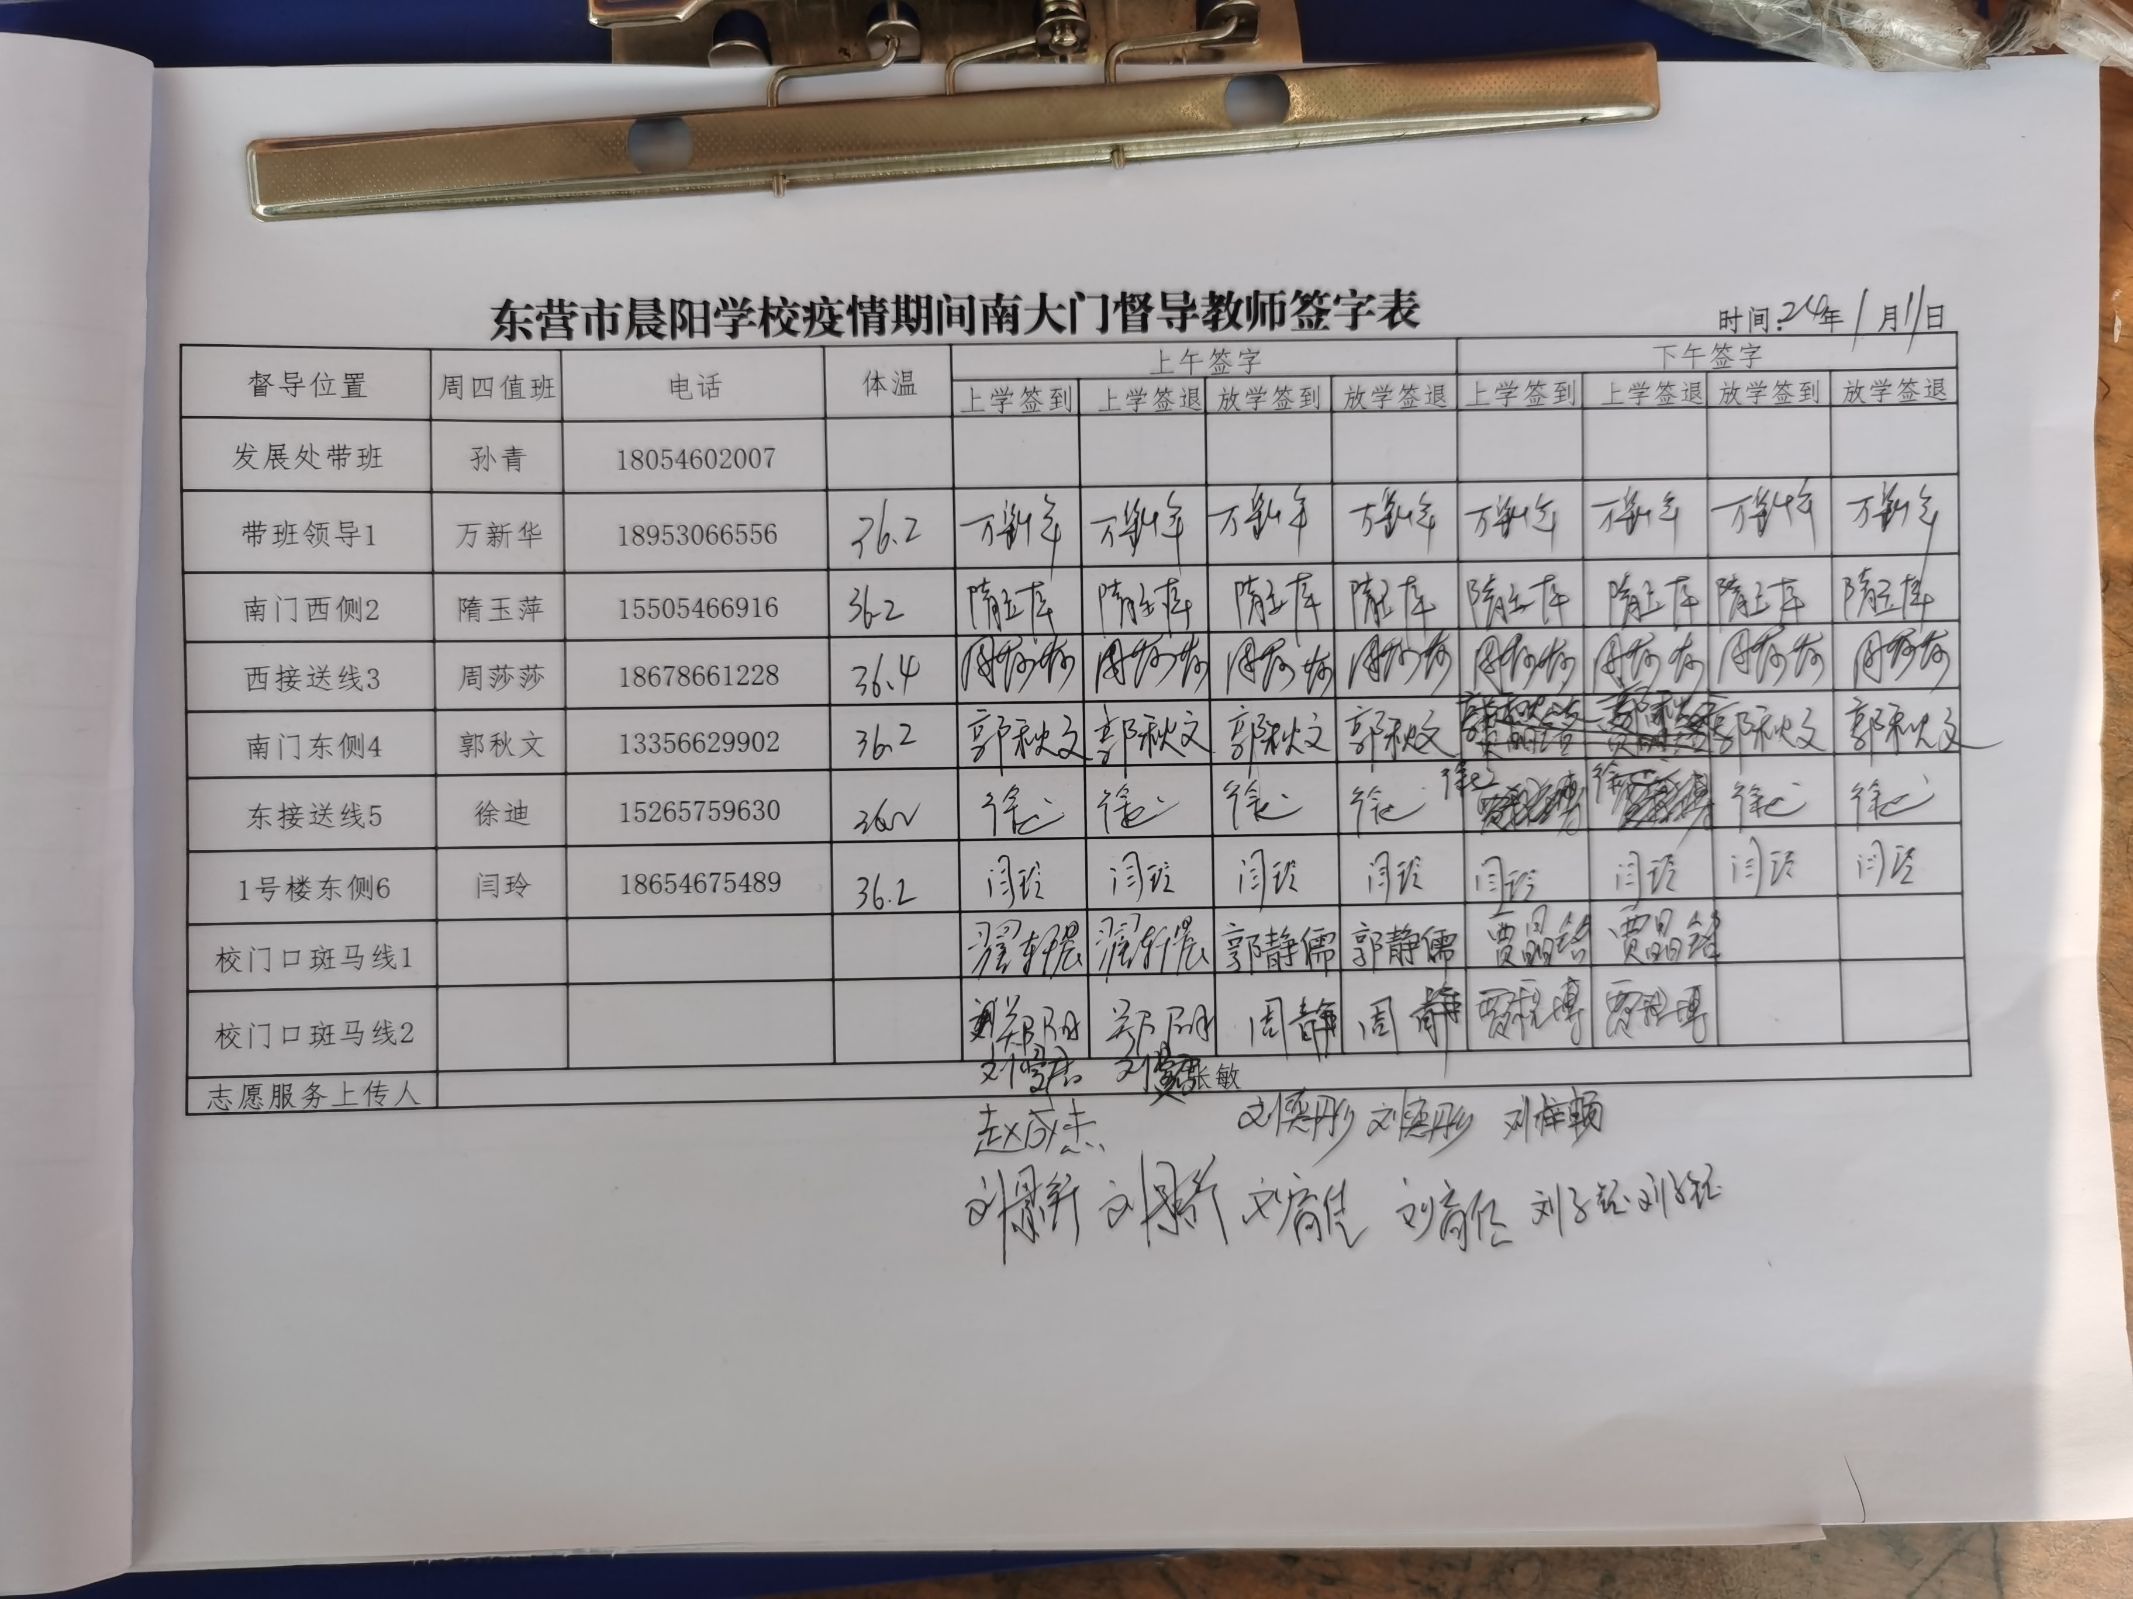 东营市晨阳学校疫情期间南大门督导教师签字表
时间:24年1月11日
督导位置 周四值班 电话 体温 上午签字 下午签字
上学签到 上学签退 放学签到 放学签退 上学签到 上学签退 放学签到 放学签退
发展处带班 孙青 18054602007
带班领导1 万新华 18953066556 36.2 万新华 万新华 万新华 万新华 万新华 万新华 万新华 万新华
南门西侧2 隋玉萍 15505466916 36.2 隋玉萍 隋玉萍 隋玉萍 隋玉萍 隋玉萍 隋玉萍 隋玉萍 隋玉萍
西接送线3 周莎莎 18678661228 36.4 周莎莎 周莎莎 周莎莎 周莎莎 周莎莎 周莎莎 周莎莎 周莎莎
南门东侧4 郭秋文 13356629902 36.2 郭秋文 郭秋文 郭秋文 郭秋文 郭秋文 郭秋文
东接送线5 徐迪 15265759630 36.2 徐迪 徐迪 徐迪 徐迪 徐迪 徐迪 徐迪 徐迪
1号楼东侧6 闫玲 18654675489 36.2 闫玲 闫玲 闫玲 闫玲 闫玲 闫玲 闫玲 闫玲
校门口斑马线1 翟轩晨 翟轩晨 郭静儒 郭静儒 贾晶铭 贾晶铭
校门口斑马线2 周静 周静
志愿服务上传人 张敏
赵成杰 刘奕彤 刘奕彤
刘育佳